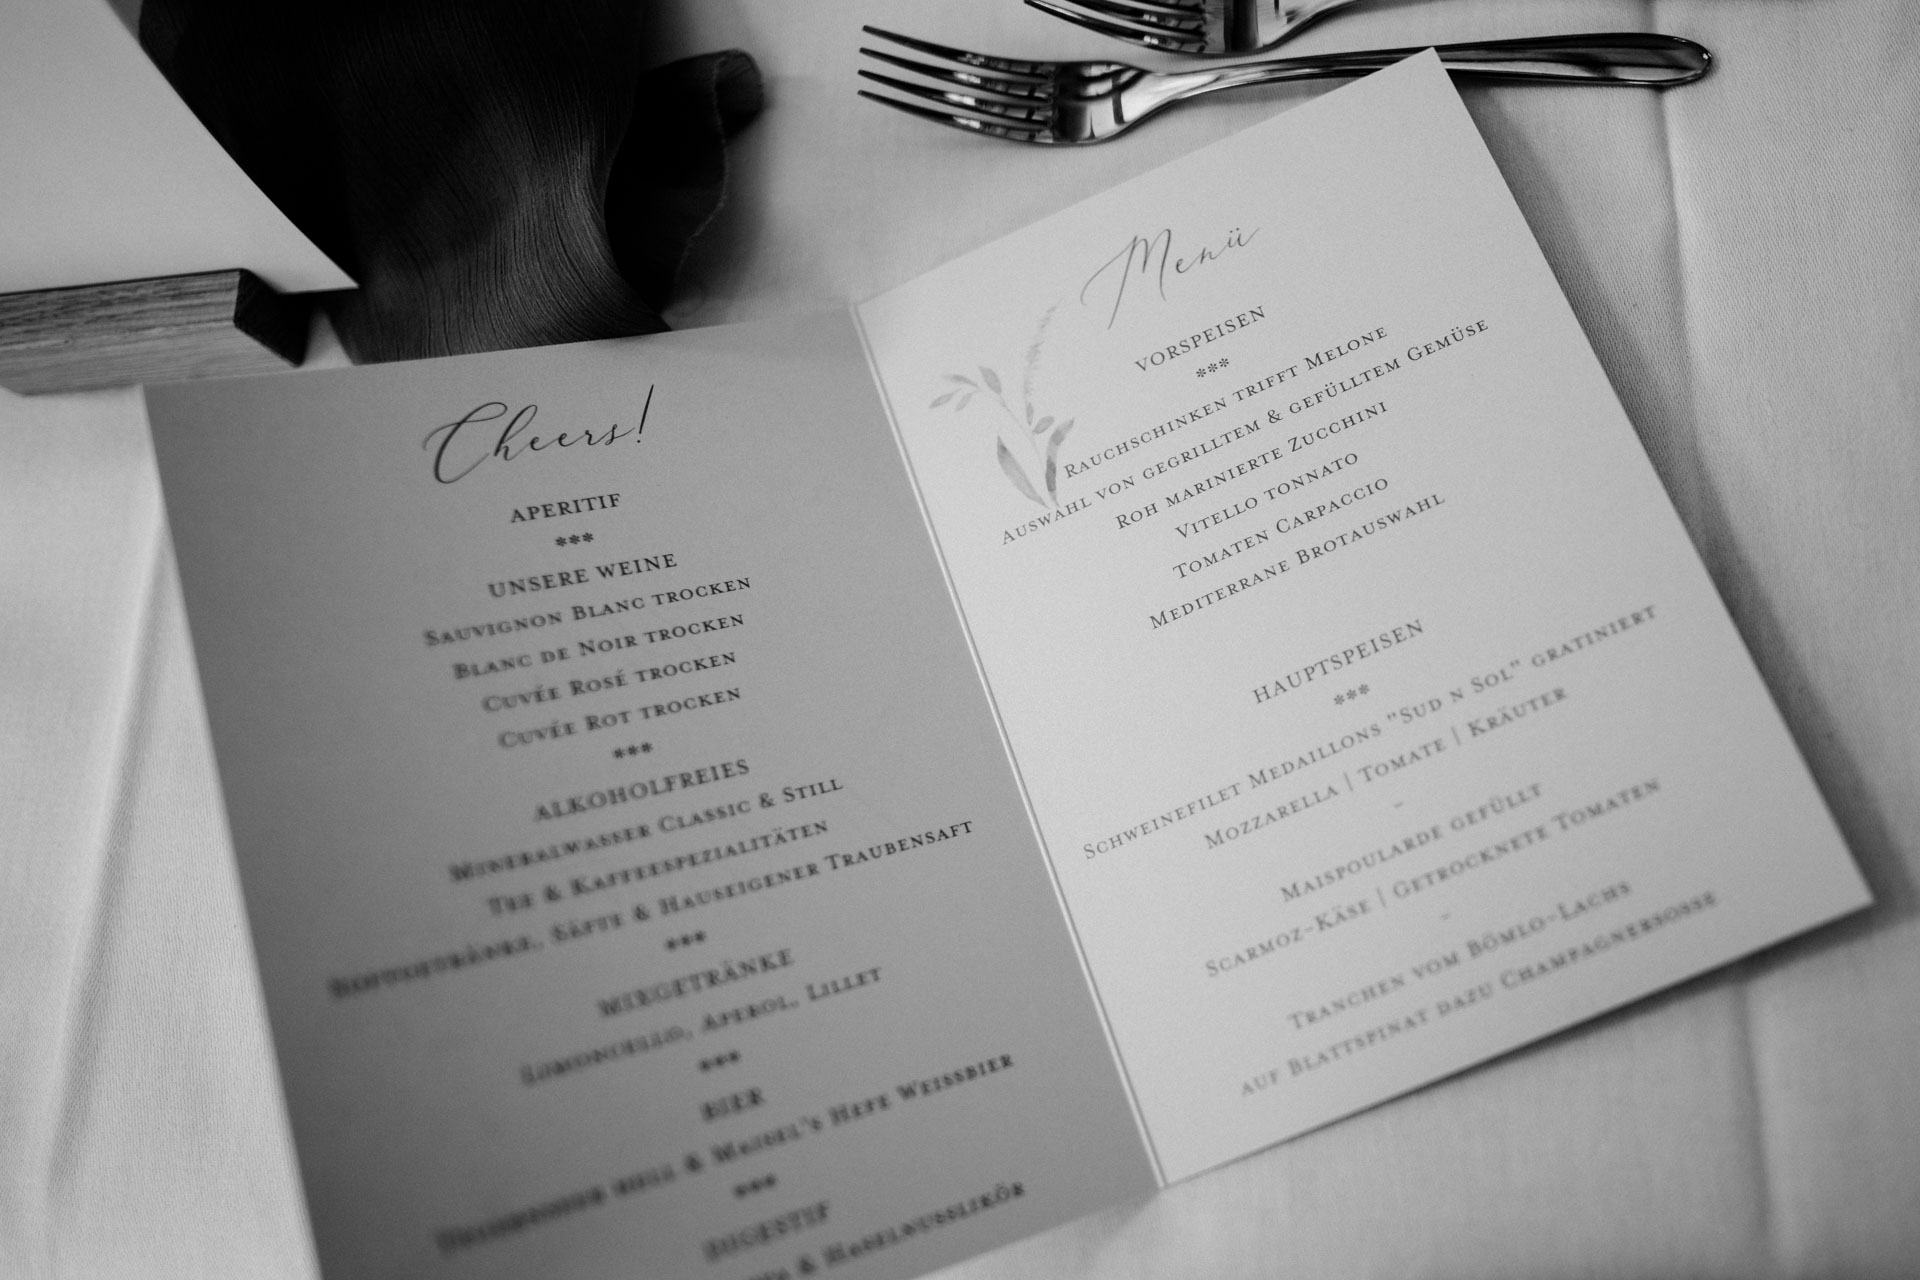 Cheers!
APERITIF
***
UNSERE WEINE
SAUVIGNON BLANC TROCKEN
BLANC DE NOIR TROCKEN
CUVÉE ROSÉ TROCKEN
CUVÉE ROT TROCKEN
***
ALKOHOLFREIES
MINERALWASSER CLASSIC & STILL
TEE & KAFFEESPEZIALITÄTEN
SOFTGETRÄNKE, SÄFTE & HAUSEIGENER TRAUBENSAFT
***
MIXGETRÄNKE
LIMONCELLO, APEROL, LILLET
***
BIER
HELL & MAISEL'S HEFE WEISSBIER
***
DIGESTIF
& HASELNUSSLIKÖR
Menü
VORSPEISEN
***
RAUCHSCHINKEN TRIFFT MELONE
AUSWAHL VON GEGRILLTEM & GEFÜLLTEM GEMÜSE
ROH MARINIERTE ZUCCHINI
VITELLO TONNATO
TOMATEN CARPACCIO
MEDITERRANE BROTAUSWAHL
HAUPTSPEISEN
***
SCHWEINEFILET MEDAILLONS "SUD N SOL" GRATINIERT
MOZZARELLA | TOMATE | KRÄUTER
-
MAISPOULARDE GEFÜLLT
SCARMOZ-KÄSE | GETROCKNETE TOMATEN
-
TRANCHEN VOM BÖMLO-LACHS
AUF BLATTSPINAT DAZU CHAMPAGNERSOSSE